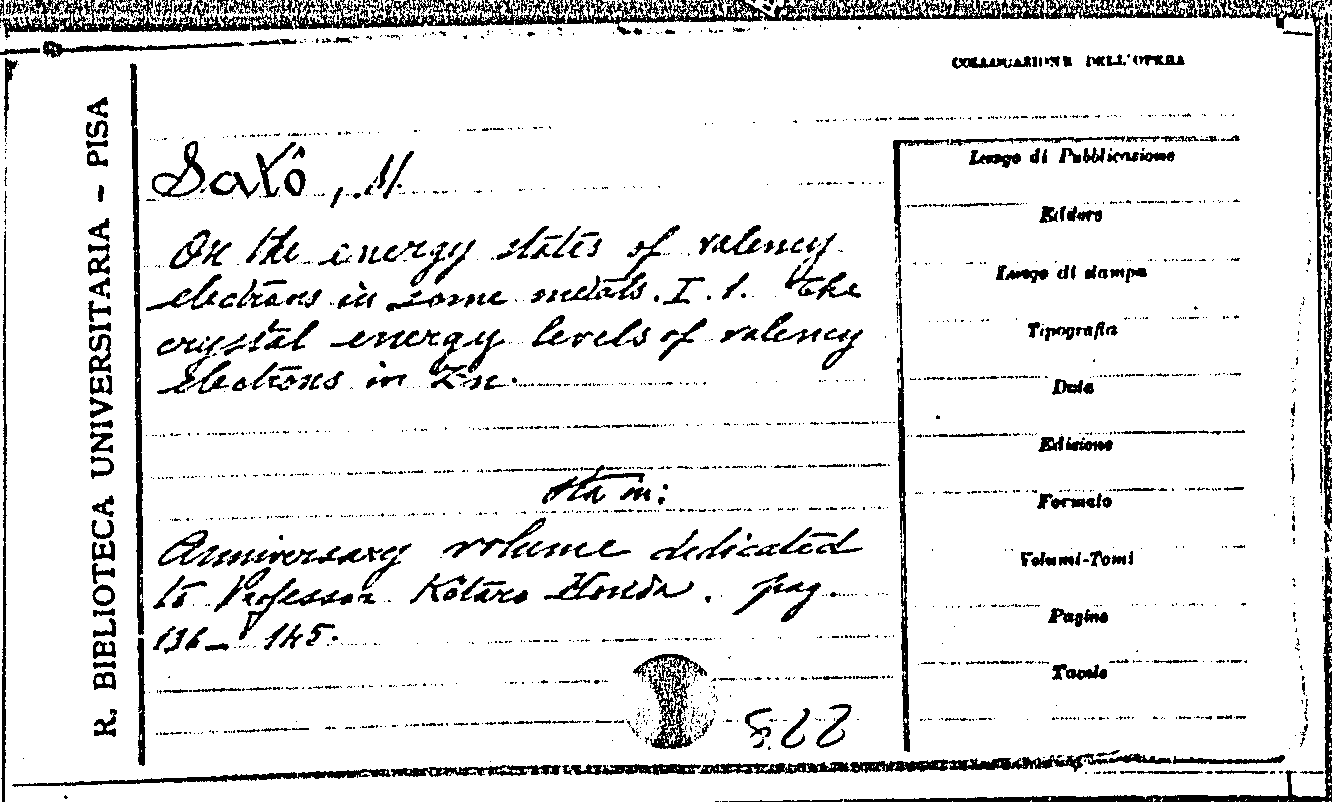 R. BIBLIOTECA UNIVERSITARIA - PISA
COLLOCAZIONE DELL'OPERA
Satô, M.
On the energy states of valency
electrons in some metals. I. 1. The
crystal energy levels of valency
electrons in Zn.
Sta in:
Anniversary volume dedicated
to Professor Kôtarô Honda. pag.
136 - 145.
822
Luogo di Pubblicazione
Editore
Luogo di stampa
Tipografia
Data
Edizione
Formato
Volumi-Tomi
Pagine
Tavole